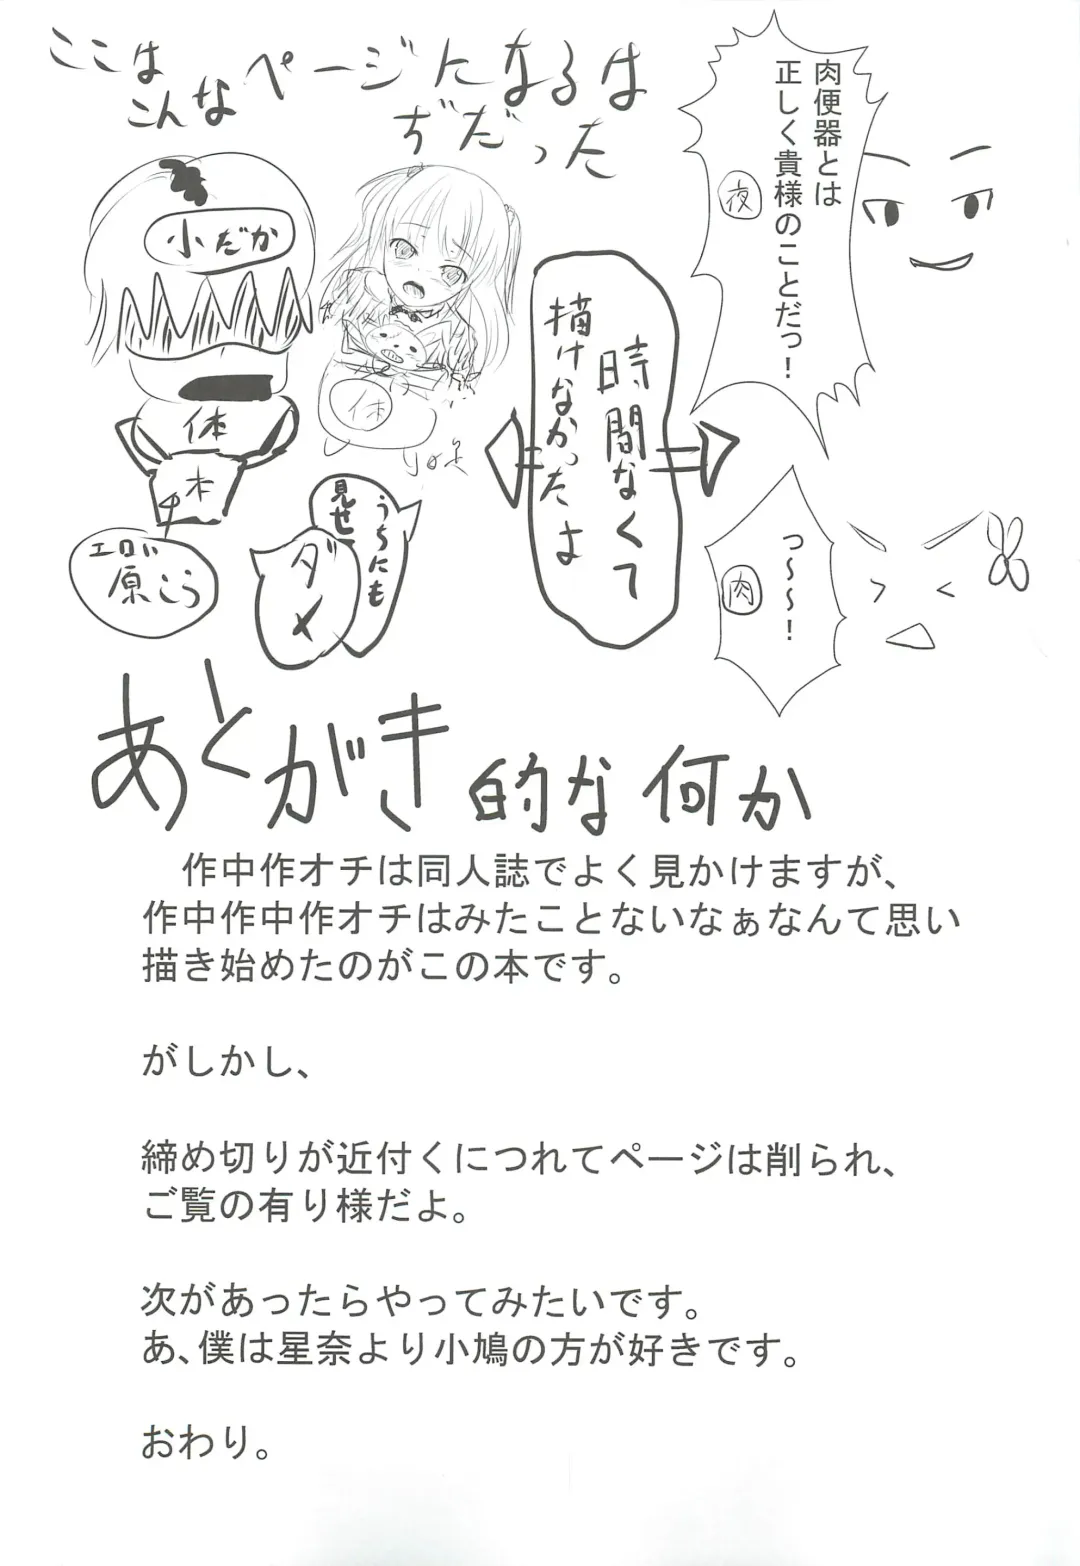 ここは
こんなページになるは
ぢだった
肉便器とは
正しく貴様のことだっ！
夜
小だか
体
本
エロい
原こう
体
うちにも
見せ
ダメ
時間なくて
描けなかったよ
っ～～～！
肉
あとがき的な何か
作中作オチは同人誌でよく見かけますが、
作中作中作オチはみたことないなぁなんて思い
描き始めたのがこの本です。
がしかし、
締め切りが近付くにつれてページは削られ、
ご覧の有り様だよ。
次があったらやってみたいです。
あ、僕は星奈より小鳩の方が好きです。
おわり。